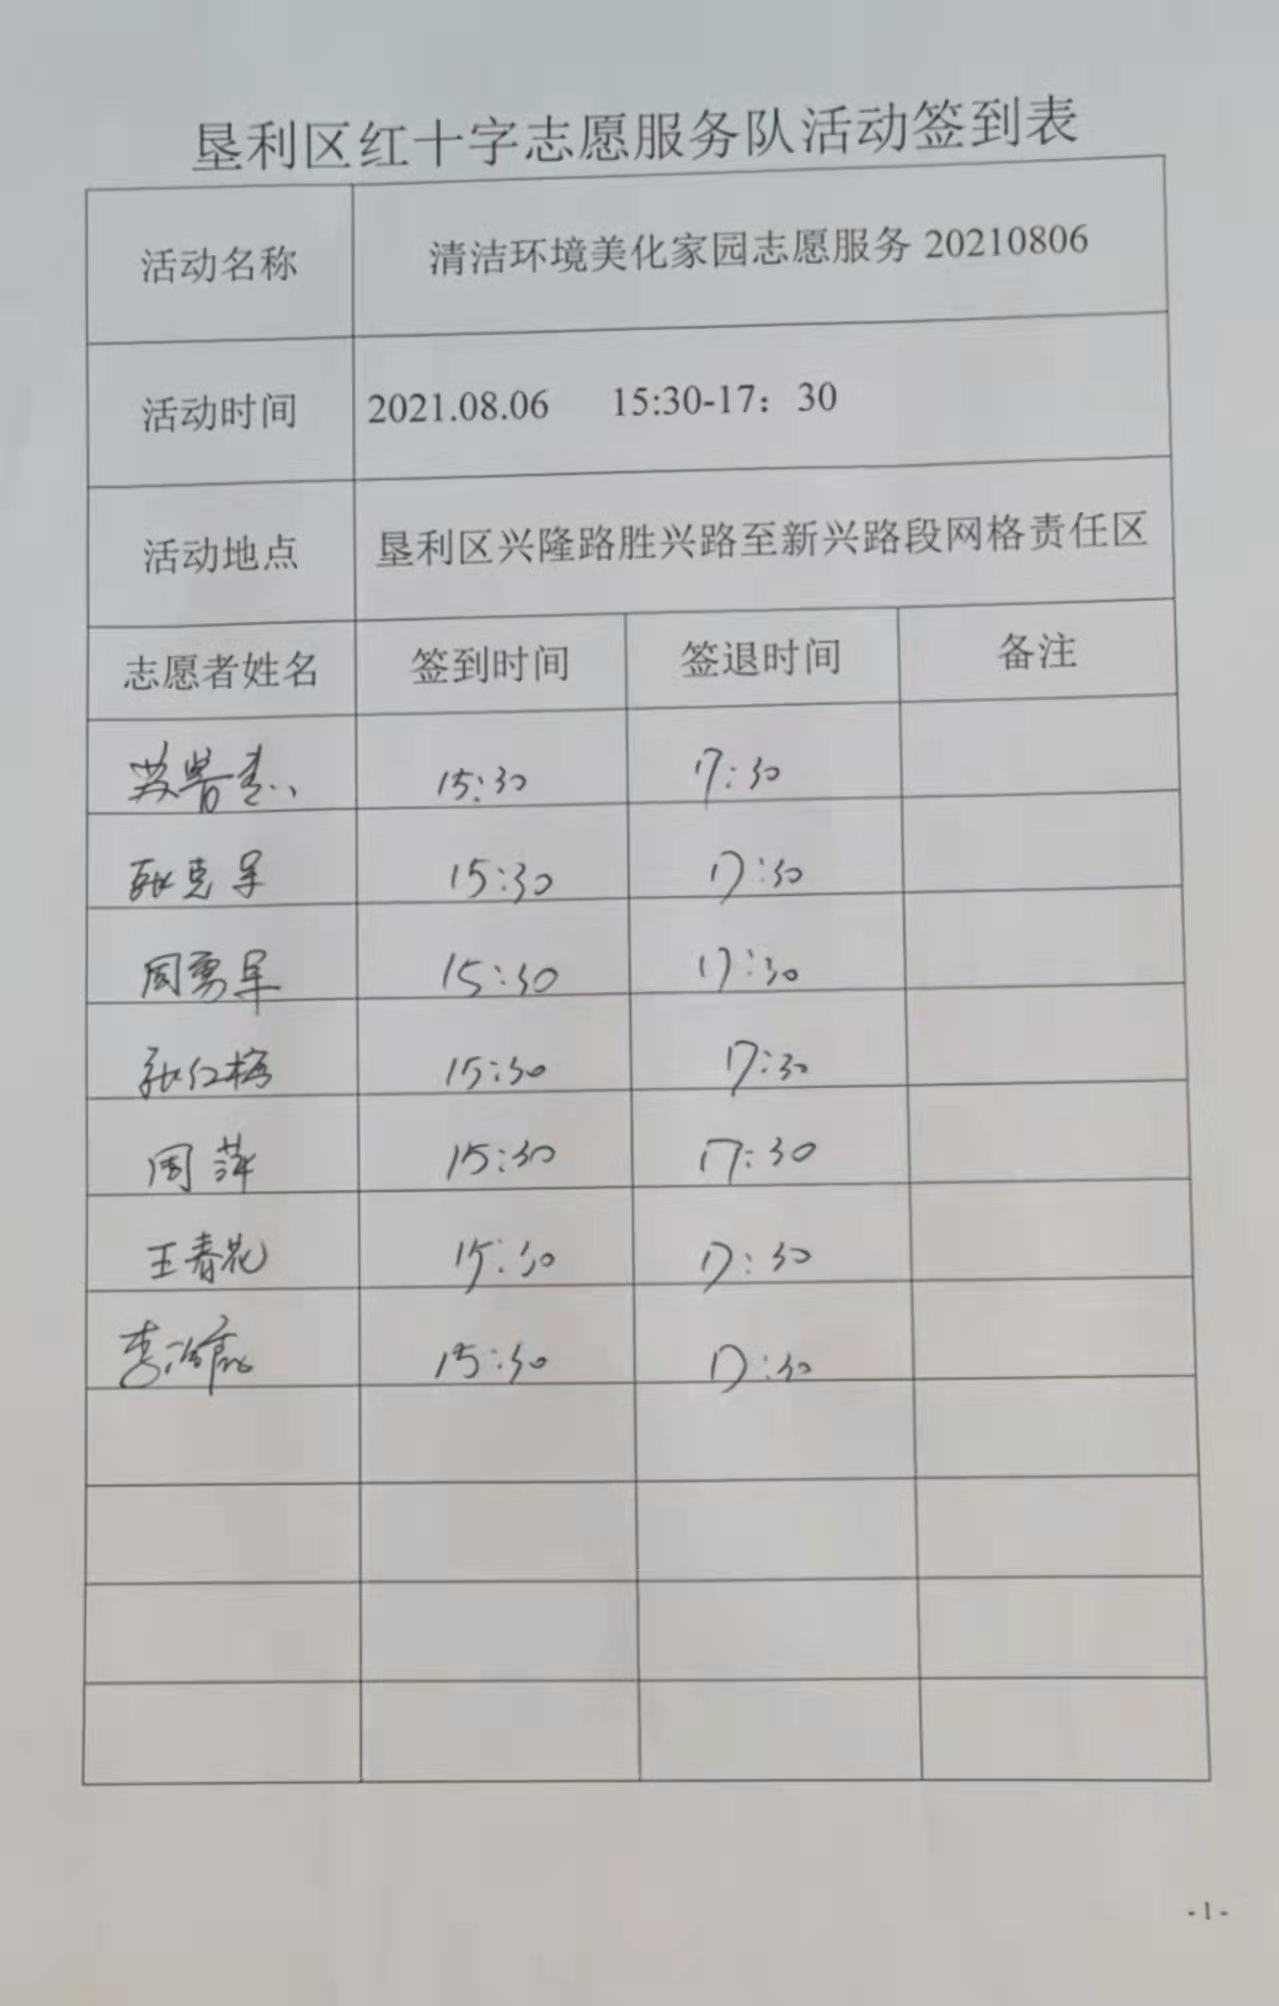 垦利区红十字志愿服务队活动签到表
活动名称 清洁环境美化家园志愿服务 20210806
活动时间 2021.08.06 15:30-17：30
活动地点 垦利区兴隆路胜兴路至新兴路段网格责任区
志愿者姓名 签到时间 签退时间 备注
15:30 17:30
15:30 17:30
周勇军 15:30 17:30
张红梅 15:30 17:30
周萍 15:30 17:30
王春花 15:30 17:30
15:30 17:30
- 1 -